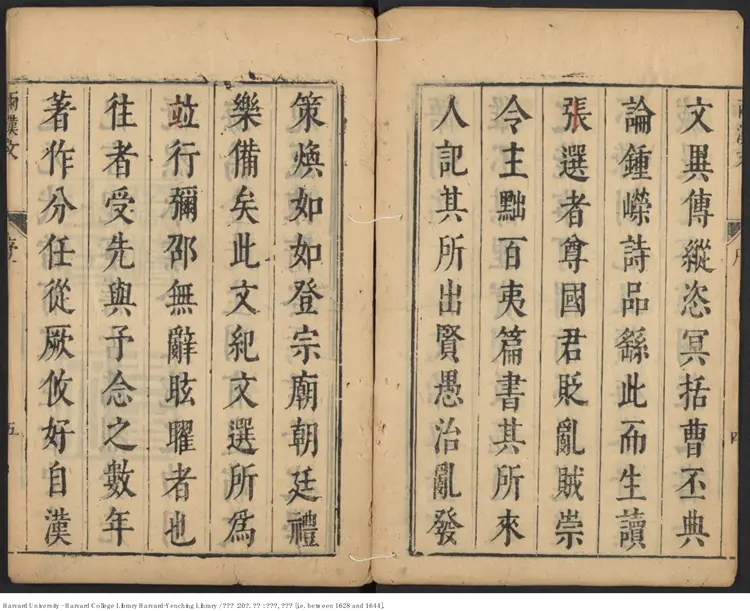 文異傳縱恣冥括曹丕典
論鍾嶸詩品繇此而生讀
張選者尊國君貶亂賊崇
令主黜百夷篇書其所來
人記其所出賢愚治亂發
四
策煥如如登宗廟朝廷禮
樂備矣此文紀文選所爲
竝行彌邵無辭眩曜者也
往者受先與予念之數年
著作分任從厥攸好自漢
兩漢文
序
五
Harvard University - Harvard College Library Harvard-Yenching Library / ???? 20?. ?? : ???, ??? [i.e. between 1628 and 1644].